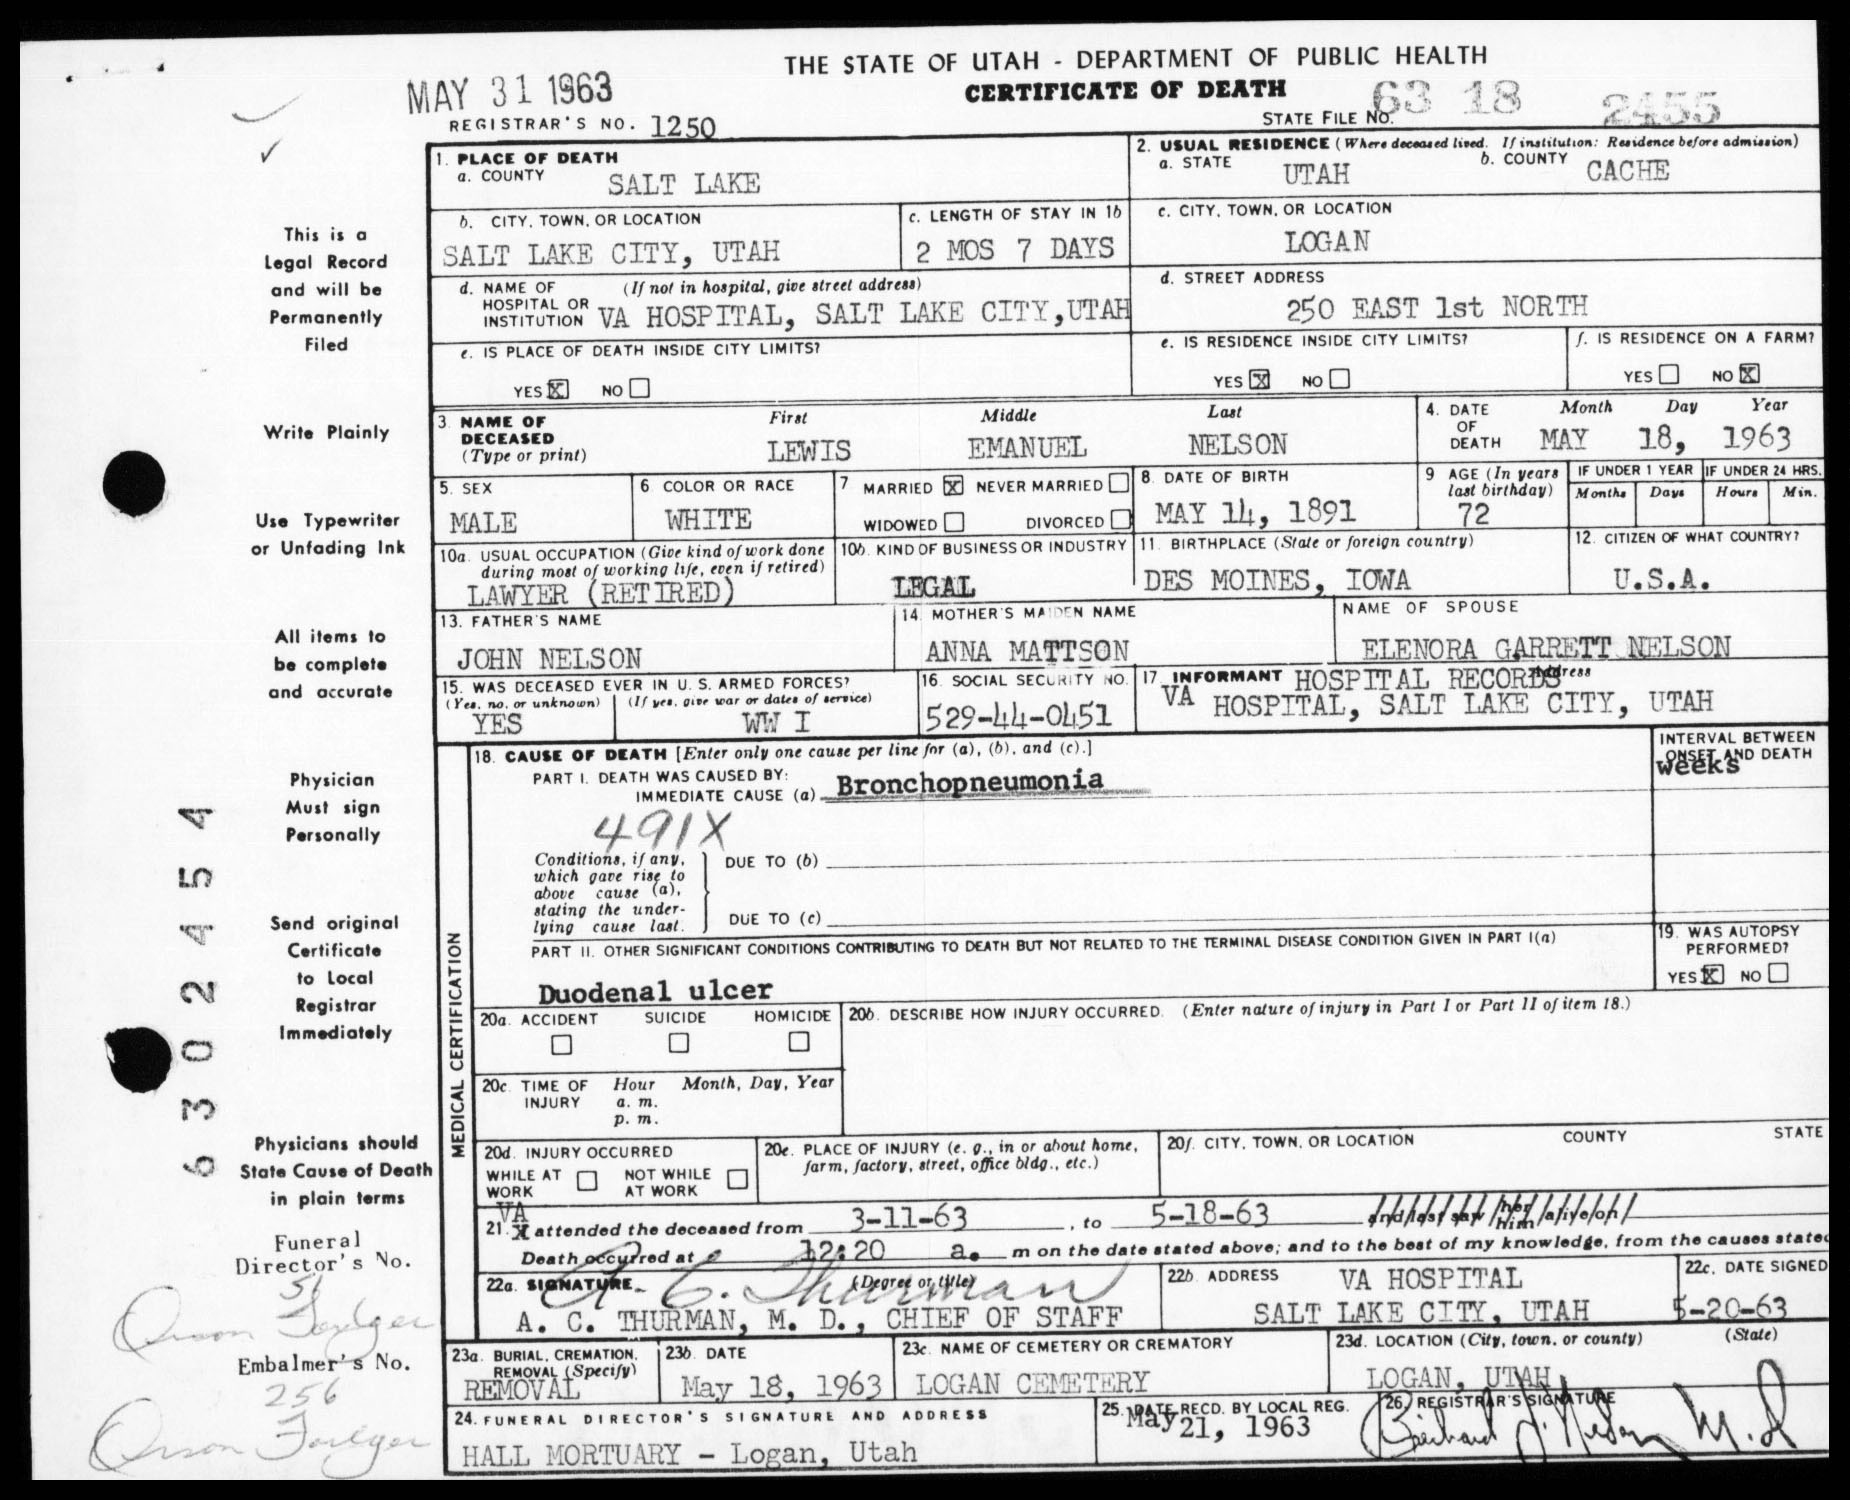 THE STATE OF UTAH - DEPARTMENT OF PUBLIC HEALTH
MAY 31 1963
CERTIFICATE OF DEATH
STATE FILE NO. 63 18 2455
REGISTRAR'S NO. 1250
1. PLACE OF DEATH
a. COUNTY SALT LAKE
2. USUAL RESIDENCE (Where deceased lived. If institution: Residence before admission)
a. STATE UTAH b. COUNTY CACHE
b. CITY, TOWN, OR LOCATION
SALT LAKE CITY, UTAH
c. LENGTH OF STAY IN 1b
2 MOS 7 DAYS
c. CITY, TOWN, OR LOCATION
LOGAN
d. NAME OF (If not in hospital, give street address)
HOSPITAL OR
INSTITUTION VA HOSPITAL, SALT LAKE CITY,UTAH
d. STREET ADDRESS
250 EAST 1st NORTH
e. IS PLACE OF DEATH INSIDE CITY LIMITS?
YES X NO
e. IS RESIDENCE INSIDE CITY LIMITS?
YES X NO
f. IS RESIDENCE ON A FARM?
YES NO X
3. NAME OF DECEASED (Type or print)
First Middle Last
LEWIS EMANUEL NELSON
4. DATE OF DEATH
Month Day Year
MAY 18, 1963
5. SEX
MALE
6. COLOR OR RACE
WHITE
7. MARRIED X NEVER MARRIED
WIDOWED DIVORCED
8. DATE OF BIRTH
MAY 14, 1891
9. AGE (In years last birthday)
72
IF UNDER 1 YEAR
Months Days
IF UNDER 24 HRS.
Hours Min.
10a. USUAL OCCUPATION (Give kind of work done
during most of working life, even if retired)
LAWYER (RETIRED)
10b. KIND OF BUSINESS OR INDUSTRY
LEGAL
11. BIRTHPLACE (State or foreign country)
DES MOINES, IOWA
12. CITIZEN OF WHAT COUNTRY?
U.S.A.
13. FATHER'S NAME
JOHN NELSON
14. MOTHER'S MAIDEN NAME
ANNA MATTSON
NAME OF SPOUSE
ELENORA GARRETT NELSON
15. WAS DECEASED EVER IN U. S. ARMED FORCES?
(Yes, no, or unknown) (If yes, give war or dates of service)
YES WW I
16. SOCIAL SECURITY NO.
529-44-0451
17. INFORMANT HOSPITAL RECORDS Address
VA HOSPITAL, SALT LAKE CITY, UTAH
MEDICAL CERTIFICATION
18. CAUSE OF DEATH [Enter only one cause per line for (a), (b), and (c).]
PART I. DEATH WAS CAUSED BY:
IMMEDIATE CAUSE (a) Bronchopneumonia
INTERVAL BETWEEN
ONSET AND DEATH
weeks
491X
Conditions, if any,
which gave rise to
above cause (a),
stating the under-
lying cause last.
DUE TO (b)
DUE TO (c)
PART II. OTHER SIGNIFICANT CONDITIONS CONTRIBUTING TO DEATH BUT NOT RELATED TO THE TERMINAL DISEASE CONDITION GIVEN IN PART I(a)
Duodenal ulcer
19. WAS AUTOPSY
PERFORMED?
YES X NO
20a. ACCIDENT SUICIDE HOMICIDE
20b. DESCRIBE HOW INJURY OCCURRED. (Enter nature of injury in Part I or Part II of item 18.)
20c. TIME OF INJURY
Hour Month, Day, Year
a. m.
p. m.
20d. INJURY OCCURRED
WHILE AT WORK NOT WHILE AT WORK
20e. PLACE OF INJURY (e. g., in or about home,
farm, factory, street, office bldg., etc.)
20f. CITY, TOWN, OR LOCATION COUNTY STATE
VA
21. X attended the deceased from 3-11-63, to 5-18-63 and last saw her him alive on
Death occurred at 12:20 a. m on the date stated above; and to the best of my knowledge, from the causes stated
22a. SIGNATURE (Degree or title)
A. C. Thurman
A. C. THURMAN, M. D., CHIEF OF STAFF
22b. ADDRESS VA HOSPITAL
SALT LAKE CITY, UTAH
22c. DATE SIGNED
5-20-63
23a. BURIAL, CREMATION,
REMOVAL (Specify)
REMOVAL
23b. DATE
May 18, 1963
23c. NAME OF CEMETERY OR CREMATORY
LOGAN CEMETERY
23d. LOCATION (City, town, or county) (State)
LOGAN, UTAH
24. FUNERAL DIRECTOR'S SIGNATURE AND ADDRESS
HALL MORTUARY - Logan, Utah
25. DATE RECD. BY LOCAL REG.
May 21, 1963
26. REGISTRAR'S SIGNATURE
M.D
This is a
Legal Record
and will be
Permanently
Filed
Write Plainly
Use Typewriter
or Unfading Ink
All items to
be complete
and accurate
Physician
Must sign
Personally
Send original
Certificate
to Local
Registrar
Immediately
Physicians should
State Cause of Death
in plain terms
Funeral
Director's No.
51
Embalmer's No.
256
6302454